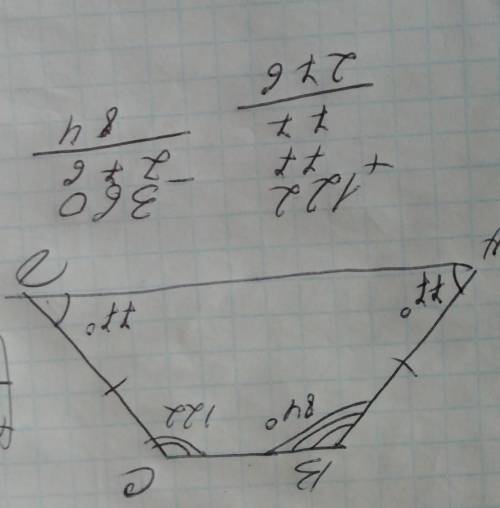 B C
84° 122
77° 77°
A D
122
+ 77
77
276
360
- 276
84